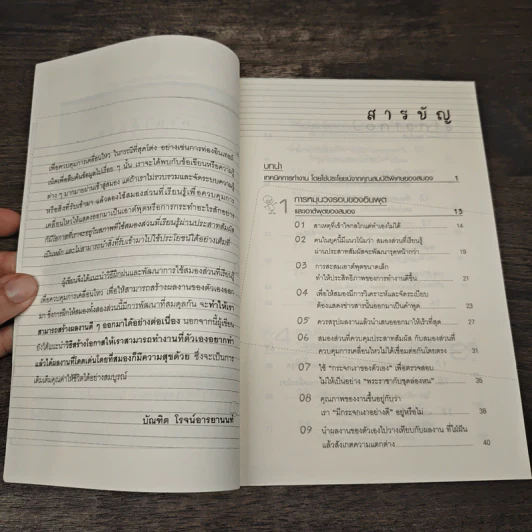 เพื่อควบคุมการเคลื่อนไหว ในกรณีที่สุดโต่ง อย่างเช่นการท่องอินเทอร์
เน็ตเพื่อสืบค้นข้อมูลไปเรื่อย ๆ นั้น เราจะได้พบกับข้อเขียนหรือความรู้
ต่าง ๆ มากมายผ่านเข้าสู่สมอง แต่ถ้าเราไม่รวบรวมและจัดระบบความรู้
หรือสิ่งที่รับเข้ามาแล้วลองใช้สมองส่วนที่เรียนรู้เพื่อควบคุมการ
เคลื่อนไหวให้แสดงออกมาเป็นเอาต์พุตหรือการกระทำอะไรสักอย่าง
ก็มีโอกาสที่เราจะอยู่ในสภาพที่ใช้สมองส่วนที่เรียนรู้ผ่านประสาทสัมผัส
เป็นหลัก และไม่สามารถนำสิ่งที่รับเข้ามาไปใช้ประโยชน์ได้อย่างเต็มที่
ผู้เขียนจึงได้แนะนำวิธีฝึกฝนและพัฒนาการใช้สมองส่วนที่เรียนรู้
เพื่อควบคุมการเคลื่อนไหว เพื่อให้สามารถสร้างผลงานของตัวเองออก
มา ซึ่งการฝึกให้สมองทั้งสองส่วนนี้มีการพัฒนาที่สมดุลกัน จะทำให้เรา
สามารถสร้างผลงานดี ๆ ออกมาได้อย่างต่อเนื่อง นอกจากนี้ผู้เขียน
ยังได้แนะนำวิธีสร้างโอกาสให้เราสามารถทำงานที่ตัวเองอยากทำ
แล้วได้ผลงานที่โดดเด่นโดยที่สมองก็มีความสุขด้วย ซึ่งจะเป็นการ
เติมเต็มคุณค่าให้ชีวิตได้อย่างสมบูรณ์
บัณฑิต โรจน์อารยานนท์
สารบัญ
บทนำ
เทคนิคการทำงาน โดยใช้ประโยชน์จากคุณสมบัติพิเศษของสมอง 1
1 การหมุนวงรอบของอินพุต
และเอาต์พุตของสมอง 13
01 สาเหตุที่เข้าใจกลไกแต่ทำเองไม่ได้ 14
02 คนในยุคนี้มีแนวโน้มว่า สมองส่วนที่เรียนรู้
ผ่านประสาทสัมผัสจะพัฒนารุดหน้ากว่า 19
03 การสะสมเอาต์พุตขนาดเล็ก
ทำให้ประสิทธิภาพของการทำงานดีขึ้น 21
04 เพื่อให้สมองมีการวิเคราะห์และจัดระเบียบ
ต้องแสดงข่าวสารนั้นออกมาเป็นคำพูด 24
05 ควรสรุปผลงานแล้วนำเสนอออกมาให้เร็วที่สุด 27
06 สมองส่วนที่ควบคุมประสาทสัมผัส กับสมองส่วนที่
ควบคุมการเคลื่อนไหวไม่ได้เชื่อมต่อกันโดยตรง 31
07 ใช้ "กระจกเงาของตัวเอง" เพื่อตรวจสอบ
ไม่ให้เป็นอย่าง "พระราชากับชุดล่องหน" 35
08 คุณภาพของงานขึ้นอยู่กับว่า
เรา "มีกระจกเงาอย่างดี" อยู่หรือไม่ 38
09 นำผลงานของตัวเองไปวางเทียบกับผลงาน ที่ไม่มีใ
แล้วสังเกตความแตกต่าง 40